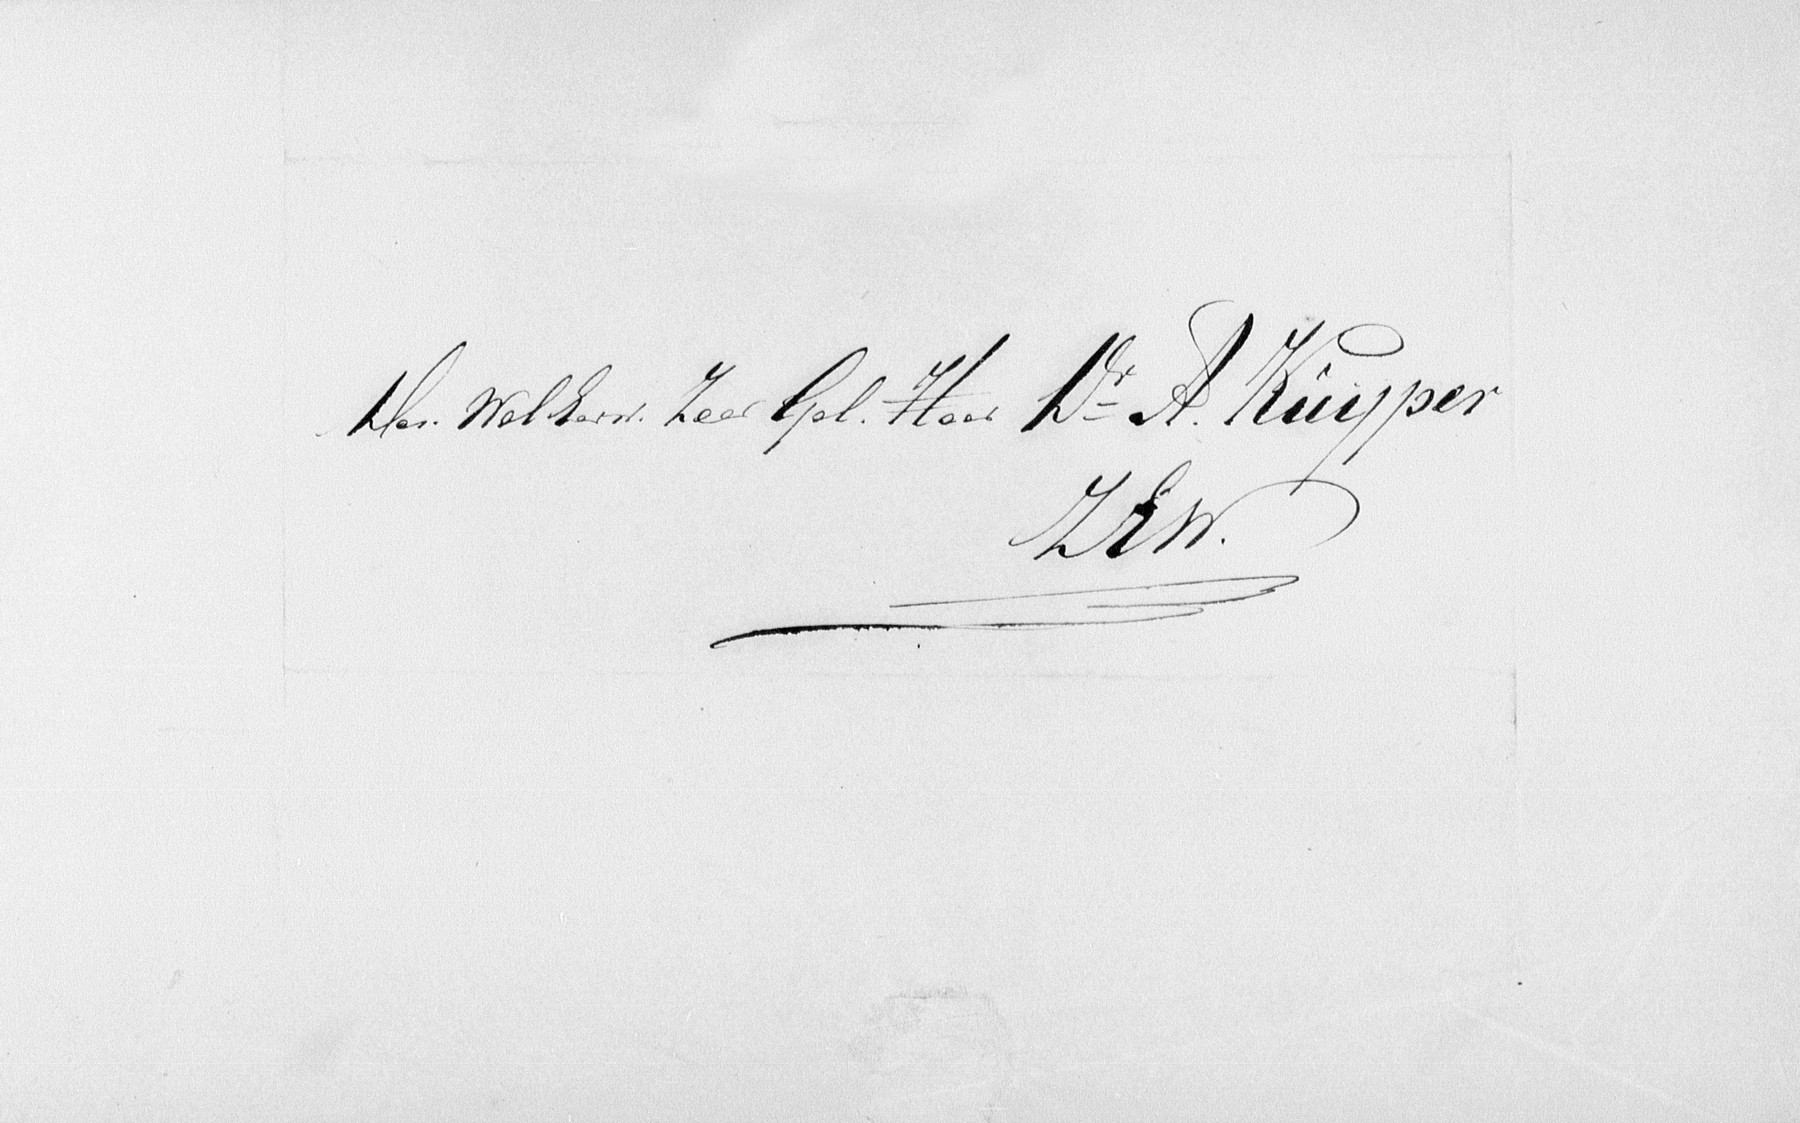 Den. Wel Eerw. Zeer Gel. Heer Dr. A. Kuyper
Z E W.